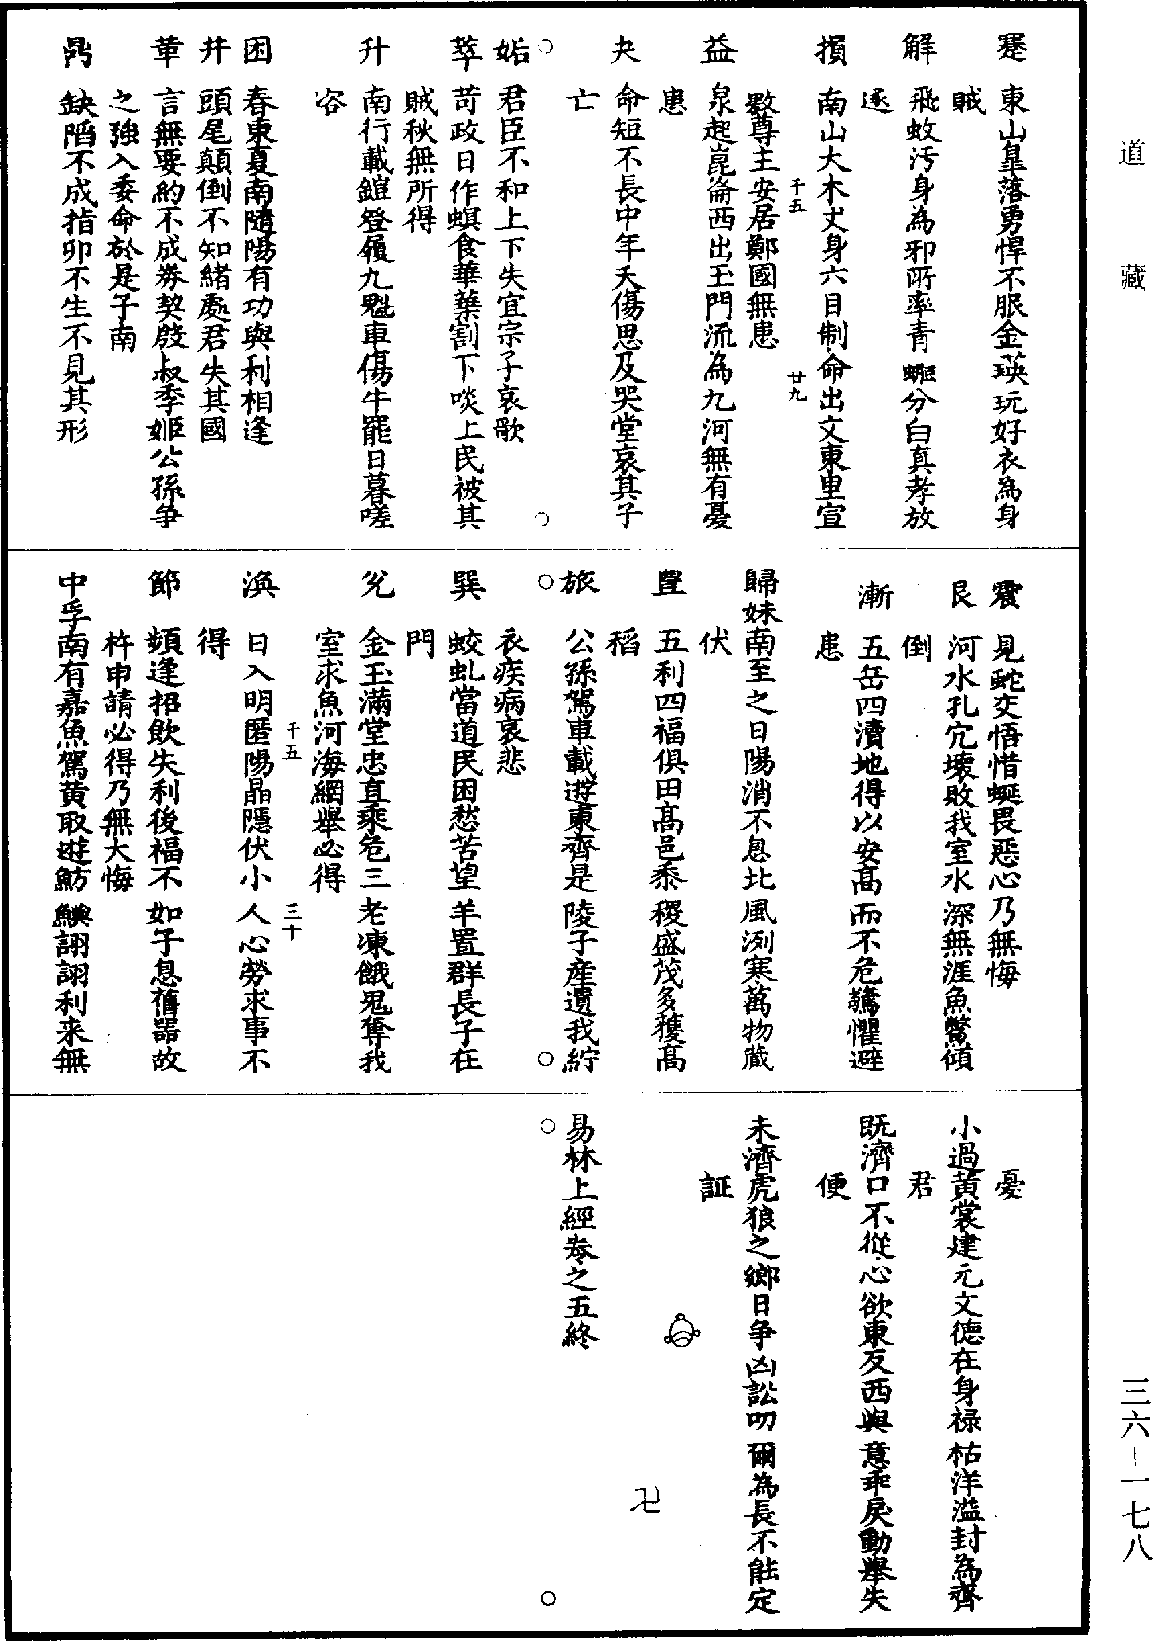 道藏
蹇　東山皐落勇悍不服金瑛玩好衣為身
賊
解　飛蚊汚身為邪所牽青蠅分白真孝放
逐
損　南山大木丈身六目制命出文東里宣
千五　廿九
數尊主安居鄭國無患
益　泉起崑崙西出玉門流為九河無有憂
患
夬　命短不長中年夭傷思及哭堂哀其子
亡
姤　君臣不和上下失宜宗子哀歌
萃　苛政日作螟食華葉割下啖上民被其
賊秋無所得
升　南行載鎧登履九魁車傷牛罷日暮嗟
咨
困　春東夏南隨陽有功與利相逢
井　頭尾顛倒不知緒處君失其國
革　言無要約不成券契殷叔季姬公孫争
之強入委命於是子南
鼎　缺䧟不成指卯不生不見其形
震　見蛇交悟惜蜒畏惡心乃無悔
艮　河水孔宂壞敗我室水深無涯魚驚傾
倒
漸　五岳四瀆地得以安高而不危驚懼避
患
歸妹南至之日陽消不息北風冽寒萬物藏
伏
豐　五利四福俱田高邑黍稷盛茂多穫高
稻
旅　公孫駕車載遊東齊是陵子産遺我紵
衣疾病哀悲
巽　蛟虬當道民困愁苦望羊置群長子在
門
兊　金玉滿堂忠直乘危三老凍餓鬼奪我
室求魚河海網舉必得
千五　三十
渙　日入明匿陽晶隱伏小人心勞求事不
得
節　頻逢招飲失利後福不如子息舊器故
杵申請必得乃無大悔
中孚南有嘉魚駕黄取遊魴鱮詡詡利来無
憂
小過黄裳建元文德在身禄祐洋溢封為齊
君
既濟口不從心欲東反西與意乖戾動舉失
便
未濟虎狼之鄉日争凶訟叨爾為長不能定
証
易林上經卷之五終
卍
三六－一七八